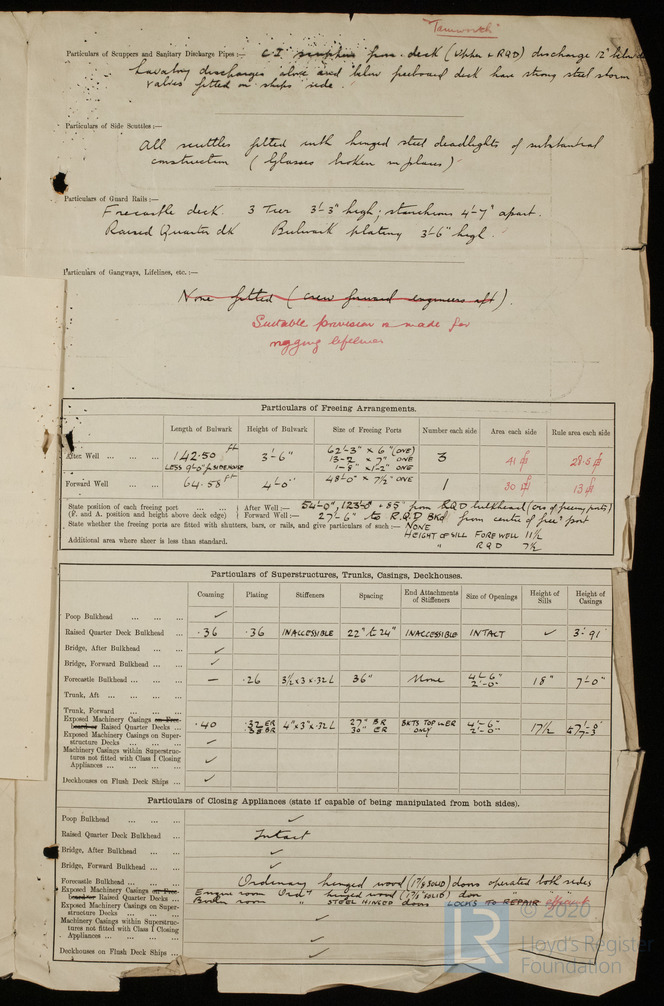 "Tamworth"
Particulars of Scuppers and Sanitary Discharge Pipes:— C.I. scuppers from deck (Upper & RQD) discharge 12" below de
Lavatory discharges above and below freeboard deck have strong steel storm
valves fitted on ships side.
Particulars of Side Scuttles:—
All scuttles fitted with hinged steel deadlights of substantial
construction (Glasses broken in places)
Particulars of Guard Rails:—
Forecastle deck. 3 Tier 3'-3" high; stanchions 4'-7" apart.
Raised Quarter dk Bulwark plating 3'-6" high.
Particulars of Gangways, Lifelines, etc.:—
None fitted (crew forward engineers aft).
Suitable provision is made for
rigging lifelines
Particulars of Freeing Arrangements.
Length of Bulwark Height of Bulwark Size of Freeing Ports Number each side Area each side Rule area each side
After Well ... ... ... 142.50 ft 3'-6" 62'-3" x 6" (ONE) 3 41 28.5
LESS 9'-0" for SIDEHOUSE 13-2 x 7" ONE
1'-8" x 1'-2" ONE
Forward Well ... ... 64.58 FT 4'-0" 48'-0" x 7½" ONE 1 30 13
State position of each freeing port ... ... After Well:— 54'-0", 123'-0" & 85" from RQD bulkhead (crs of freeing ports)
(F. and A. position and height above deck edge) Forward Well:— 27'-6" to R.Q.D BKd from centre of free'g port
State whether the freeing ports are fitted with shutters, bars, or rails, and give particulars of such:— NONE
HEIGHT OF SILL FORE WELL 11½
Additional area where sheer is less than standard. " R Q D 7½
Particulars of Superstructures, Trunks, Casings, Deckhouses.
Coaming Plating Stiffeners Spacing End Attachments of Stiffeners Size of Openings Height of Sills Height of Casings
Poop Bulkhead ... ... ... ✓
Raised Quarter Deck Bulkhead ... .36 .36 INACCESSIBLE 22" to 24" INACCESSIBLE INTACT ✓ 3'-9½
Bridge, After Bulkhead ... ... ✓
Bridge, Forward Bulkhead ... ... ✓
Forecastle Bulkhead ... ... ... — .26 3½ x 3 x .32 L 36" None 4'-6" 2'-0" 18" 7'-0"
Trunk, Aft ... ... ... ...
Trunk, Forward ... ... ...
Exposed Machinery Casings on Free-
board or Raised Quarter Decks ... .40 .32 ER .38 BR 4" x 3" x .32 L 27" BR 30" ER BKTS TOP in ER ONLY 4'-6" 2'-0" 17½ 7'-0" to 7'-3"
Exposed Machinery Casings on Super-
structure Decks ... ... ... ✓
Machinery Casings within Superstruc-
tures not fitted with Class I Closing
Appliances ... ... ... ... ✓
Deckhouses on Flush Deck Ships ... ✓
Particulars of Closing Appliances (state if capable of being manipulated from both sides).
Poop Bulkhead ... ... ... ✓
Raised Quarter Deck Bulkhead ... Intact
Bridge, After Bulkhead ... ... ✓
Bridge, Forward Bulkhead ... ... ✓
Forecastle Bulkhead ... ... ... Ordinary hinged wood (1⅞ SOLID) doors operated both sides
Exposed Machinery Casings on Free-
board or Raised Quarter Decks ... Engine room Ord'y hinged wood (1⅞" SOLID) door " "
Boiler room " STEEL HINGED doors LOCKS TO REPAIR efficient
Exposed Machinery Casings on Super-
structure Decks ... ... ...
Machinery Casings within Superstruc-
tures not fitted with Class I Closing
Appliances ... ... ... ... ✓
Deckhouses on Flush Deck Ships ... ✓
© 2020
LR
Lloyd's Register
Foundation